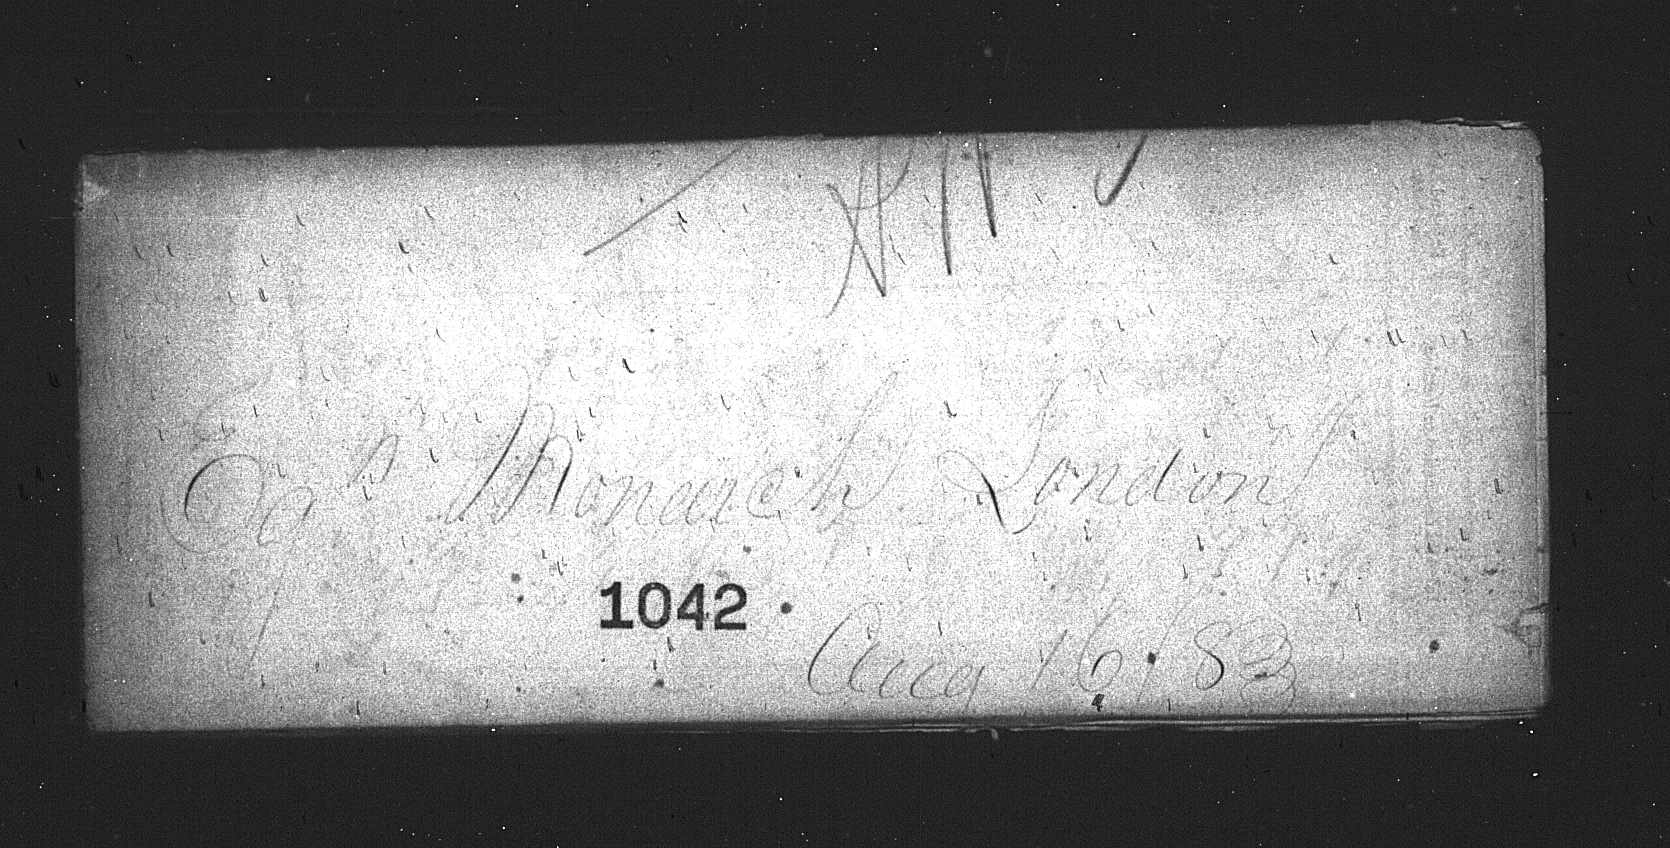 Ex S Monarch London
1042
Aug 16/83